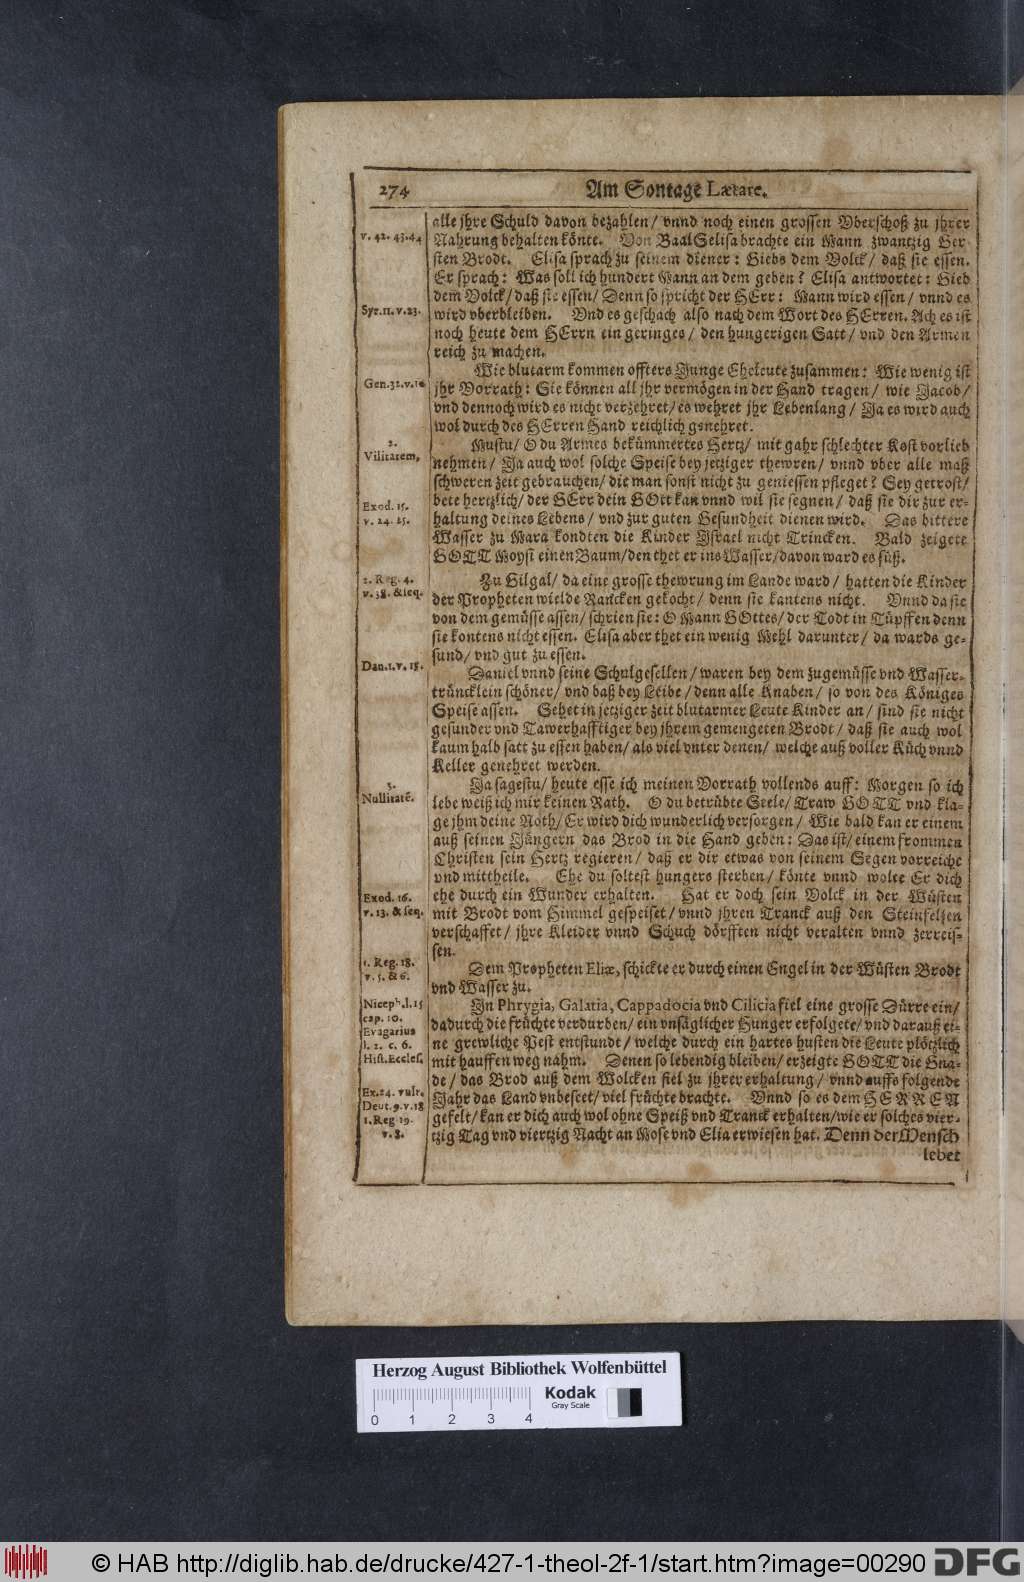 274 Am Sontage Lætare.
alle jhre Schuld davon bezahlen/ vnnd noch einen grossen Vberschoß zu jhrer
v. 42. 43. 44
Nahrung behalten könte. Von BaalSelisa brachte ein Mann zwantzig Ger-
sten Brodt. Elisa sprach zu seinem diener: Giebs dem Volck/ daß sie essen.
Er sprach: Was soll ich hundert Mann an dem geben? Elisa antwortet: Gieb
dem Volck/ daß sie essen/ Denn so spricht der HErr: Mann wird essen/ vnnd es
Syr. 11. v. 23.
wird vberbleiben. Vnd es geschach also nach dem Wort des HErren. Ach es ist
noch heute dem HErrn ein geringes/ den hungerigen Satt/ vnd den Armen
reich zu machen.
Wie blutarm kommen offters Junge Eheleute zusammen: Wie wenig ist
Gen. 32. v. 10
jhr Vorrath: Sie können all jhr vermögen in der Hand tragen/ wie Jacob/
vnd dennoch wird es nicht verzehret/ es wehret jhr Lebenlang/ Ja es wird auch
wol durch des HErren Hand reichlich genehret.
2.
Vilitatem,
Mustu/ O du Armes bekümmertes Hertz/ mit gahr schlechter Kost vorlieb
nehmen/ Ja auch wol solche Speise bey jetziger thewren/ vnnd vber alle maß
schweren zeit gebrauchen/ die man sonst nicht zu geniessen pfleget? Sey getrost/
bete hertzlich/ der HErr dein GOtt kan vnnd wil sie segnen/ daß sie dir zur er-
Exod. 15.
v. 24. 25.
haltung deines Lebens/ vnd zur guten Gesundheit dienen wird. Das bittere
Wasser zu Mara kondten die Kinder Jsrael nicht Trincken. Bald zeigete
GOTT Moysi einen Baum/ den thet er ins Wasser/ davon ward es süß.
2. Reg. 4.
v. 38. & seq.
Zu Gilgal/ da eine grosse thewrung im Lande ward/ hatten die Kinder
der Propheten wielde Rancken gekocht/ denn sie kantens nicht. Vnnd da sie
von dem gemüsse assen/ schrien sie: O Mann GOttes/ der Todt in Tüpffen denn
sie kontens nicht essen. Elisa aber thet ein wenig Mehl darunter/ da wards ge-
sund/ vnd gut zu essen.
Dan. 1. v. 15.
Daniel vnnd seine Schulgesellen/ waren bey dem zugemüsse vnd Wasser-
trüncklein schöner/ vnd baß bey Leibe/ denn alle Knaben/ so von des Königes
Speise assen. Sehet in jetziger zeit blutarmer Leute Kinder an/ sind sie nicht
gesunder vnd Tawerhafftiger bey jhrem gemengeten Brodt/ daß sie auch wol
kaum halb satt zu essen haben/ als viel vnter denen/ welche auß voller Küch vnnd
Keller genehret werden.
3.
Nullitatē.
Ja sagestu/ heute esse ich meinen Vorrath vollends auff: Morgen so ich
lebe weiß ich mir keinen Rath. O du betrübte Seele/ Traw GOTT vnd kla-
ge jhm deine Noth/ Er wird dich wunderlich versorgen/ Wie bald kan er einem
auß seinen Jüngern das Brod in die Hand geben: Das ist/ einem frommen
Christen sein Hertz regieren/ daß er dir etwas von seinem Segen vorreiche
vnd mittheile. Ehe du soltest hungers sterben/ könte vnnd wolte Er dich
Exod. 16.
v. 13. & seq.
ehe durch ein Wunder erhalten. Hat er doch sein Volck in der Wüsten
mit Brodt vom Himmel gespeiset/ vnnd jhren Tranck auß den Steinfelzen
verschaffet/ jhre Kleider vnnd Schuch dörfften nicht veralten vnnd zerreis-
sen.
1. Reg. 18.
v. 5. & 6.
Dem Propheten Eliæ, schickte er durch einen Engel in der Wüsten Brodt
vnd Wasser zu.
Niceph. l. 15
cap. 10.
Evagarius
l. 2. c. 6.
Hist. Eccles.
Jn Phrygia, Galatia, Cappadocia vnd Cilicia fiel eine grosse Dürre ein/
dadurch die früchte verdurben/ ein vnsäglicher Hunger erfolgete/ vnd darauß ei-
ne grewliche Pest entstunde/ welche durch ein hartes husten die Leute plötzlich
mit hauffen weg nahm. Denen so lebendig bleiben/ erzeigte GOTT die Gna-
de/ das Brod auß dem Wolcken fiel zu jhrer erhaltung/ vnnd auffs folgende
Ex. 24. vult.
Deut. 9. v. 18
1. Reg 19.
v. 8.
Jahr das Land vnbeseet/ viel früchte brachte. Vnnd so es dem HERREN
gefelt/ kan er dich auch wol ohne Speiß vnd Tranck erhalten/ wie er solches vier-
tzig Tag vnd viertzig Nacht an Mose vnd Elia erwiesen hat. Denn der Mensch
lebet
Herzog August Bibliothek Wolfenbüttel
Kodak
Gray Scale
0 1 2 3 4
© HAB http://diglib.hab.de/drucke/427-1-theol-2f-1/start.htm?image=00290 DFG